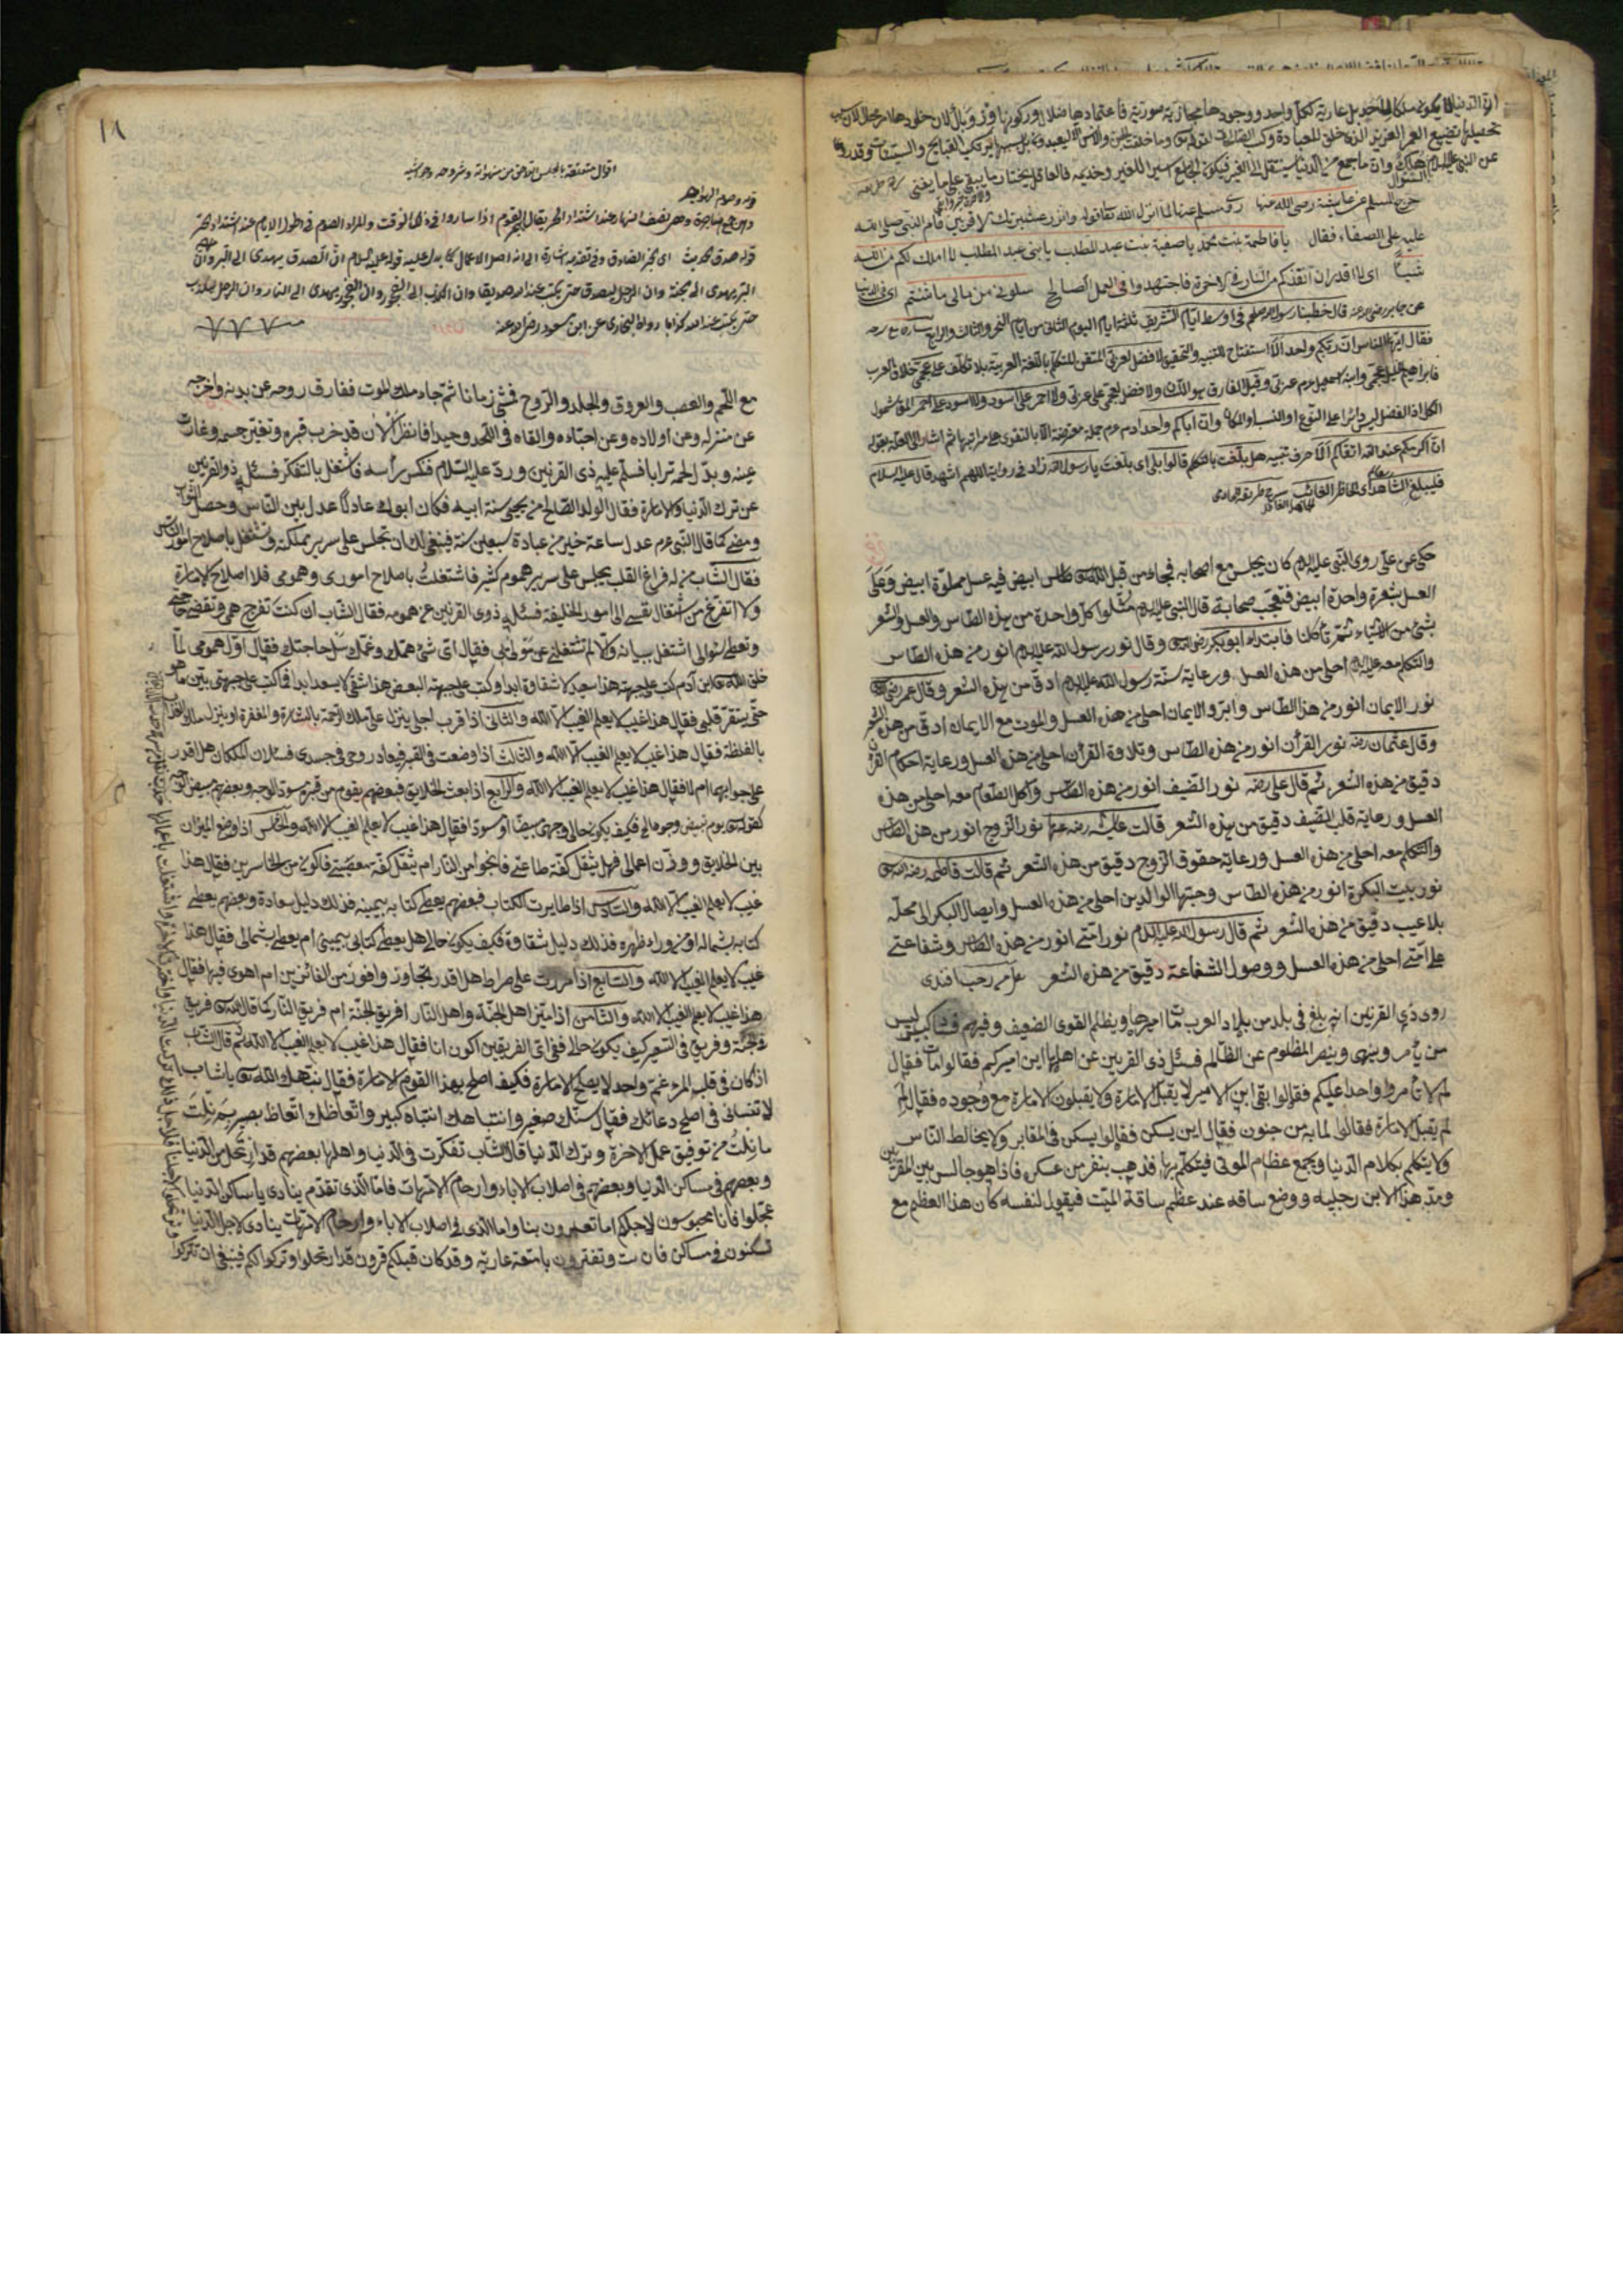 ان الدنيا لا يكون ملكا لاحد بل عارية لكل واحد ووجودها مجازية صورية فاعتمادها ضلال وركونها وزر ووبال لان خلودها امر محال لان
تحصيلها تضييع العمر العزيز الذى خلق للعبادة وما خلقت الجن والانس الا ليعبدون القبايح والسيئات وقد روى
عن النبى عليه السلام وان ما جمع من الدنيا سينتقل الى الغير فيكون الجامع اسير للغير وخديمه فالعاقل يختار ما يبقى على ما يفنى
خرج المسلم عن عايشة رضى الله عنها لما انزل الله تعالى قوله وانذر عشيرتك الاقربين قام النبى صلى الله
عليه على الصفاء فقال يا فاطمة بنت محمد يا صفية بنت عبد المطلب يا بنى عبد المطلب لا املك لكم من الله
شيئا اى لا اقدر ان انقذكم من النار فى الاخرة فاجتهدوا فى العمل الصالح سلونى من مالى ما شئتم اى فى الدنيا
عن جابر رضى عنه قال خطبنا رسول الله صلعم فى اوسط ايام التشريق ثلثة ايام اليوم الثانى من ايام النحر والثالث والرابع
فقال ايها الناس ان ربكم واحد الا استفتاح للتنبيه والتحقيق لا فضل لعربى المتقن للتكلم باللغة العربية بلا تكلف على عجمى خلاف العرب
فابراهيم الخليل عجمى وابنه اسمعيل عم عربى وقيل الفارق هو اللسان ولا فضل لعجمى على عربى ولا احمر على اسود ولا اسود على احمر
الكل اذ الفضل ليس دائرا على النوع او النسب او المكان وان اباكم واحد ادم عم جملة معترضة الا بالتقوى على مراتبها ثم اشار الى العلة بقوله
ان اكرمكم عند الله اتقاكم الا حرف تنبيه هل بلغت قالوا بلى اى بلغت يا رسول الله زاد فى رواية اللهم اشهد قال عليه السلام
فليبلغ الشاهد اى الحاضر الغائب
حكى عن على روى النبى عليه السلام كان يجلس مع اصحابه فجاء من قبل الله تعالى طاس ابيض فيه عسل مملوة ابيض وعلى
العسل شعرة واحدة ابيض فتعجب صحابة قال النبى عليه السلام مثلوا كل واحدة من هذه الطاس والعسل والشعر
بشئ من الاشياء فابتداء ابوبكر رضى الله وقال نور رسول الله عليه السلام انور من هذه الطاس
والتكلم معه عليه السلام احلى من هذه العسل ورعاية سنة رسول الله عليه السلام ادق من هذه الشعر وقال عمر رضى الله
نور الايمان انور من هذا الطاس وابر والايمان احلى من هذه العسل والموت مع الايمان ادق من هذه الشعر
وقال عثمان رضه نور القرأن انور من هذه الطاس وتلاوة القرأن احلى من هذه العسل ورعاية احكام القرأن
دقيق من هذه الشعر ثم قال على رضه نور الضيف انور من هذه الطاس واكل الطعام معه احلى من هذه
العسل ورعاية قلب الضيف دقيق من هذه الشعر قالت عائشة رضه عنها نور الزوج انور من هذا الطاس
والتكلم معه احلى من هذه العسل ورعاية حقوق الزوج دقيق من هذه الشعر ثم قالت فاطمة رضه الله
نور بيت البكرة انور من هذه الطاس وحبتها الوالدين احلى من هذه العسل وايصال البكر الى محله
بلا عيب دقيق من هذه الشعر ثم قال رسول الله عليه السلام نور امتى انور من هذه الطاس وشفاعتى
على امتى احلى من هذه العسل ووصول الشفاعة دقيق من هذه الشعر رجب افندى
روى ذى القرنين انه بلغ فى بلد من بلاد العرب مات اميرها ويظلم القوى الضعيف وفيهم ليس
من يأمر وينهى وينصر المظلوم عن الظالم فسئل ذى القرنين عن اهلها اين اميركم فقالوا مات فقال
لم لا تأمروا واحدا عليكم فقالوا بقى ابن الامير لا يقبل الامارة ولا يقبلون الامارة مع وجوده فقال لم
لم يقبل الامارة فقالوا لما به من جنون فقال اين يسكن فقالوا يسكن فى المقابر ولا يخالط الناس
ولا يتكلم بكلام الدنيا ويجمع عظام الموتى فيتكلم بها فذهب بنفر من عسكره فاذا هو جالس بين المقربين
ومد هذا الابن رجليه ووضع ساقه عند عظم ساقة الميت فيقول لنفسه كان هذا العظم مع
١٨
قوله وصوم الهواجر
وهى جمع الهاجرة وهى نصف النهار عند اشتداد الحر يقال القوم اذا ساروا فى ذلك الوقت والمراد الصوم فى طول الايام عند اشتداد الحر
قوله صدق الحديث وفى تقديمه اشارة الى انه اصل الاعمال كما يدل عليه قوله عليه السلام ان الصدق يهدى الى البر وان
البر يهدى الى الجنة وان الرجل ليصدق حتى يكتب عند الله صديقا وان الكذب الى الفجور وان الفجور يهدى الى النار وان الرجل ليكذب
حتى يكتب عند الله كذابا رواه البخارى عن ابن مسعود رضى الله عنه
مع اللحم والعصب والعروق والجلد والروح فمشى زمانا ثم جاء ملك الموت ففارق روحه عن بدنه واخرجه
عن منزله وعن اولاده وعن احبائه والقاه فى اللحد وحيدا فانظر الان قد خرب قبره وتغير جسمه وغارت
عينه وبدل لحمه ترابا فسلم عليه ذى القرنين ورد عليه السلام فنكس رأسه فاشتغل بالتفكر فسئل ذو القرنين
عن ترك الدنيا والامارة فقال الولد الصالح من يحيى سنة ابيه فكان ابوك عادلا عدل بين الناس وحصل الثواب
ومضى كما قال النبى عم عدل ساعة خير من عبادة سبعين سنة فينبغى لك ان تجلس على سرير مملكته وتشتغل باصلاح امور الناس
فقال الشاب من له فراغ القلب يجلس على سرير هموم كثير فاشتغلت باصلاح امورى وهمومى فلا اصلاح الامارة
ولا اتفرغ من اشتغال نفسى الى امور الخليفة فسئل ذوى القرنين عن همومه فقال الشاب ان كنت تفرج همى وتقضى حاجتى
وتعطى سؤالى اشتغل ببيانه والا لم تشتغلنى عن فقال اى شئ همك وغمك سل حاجتك فقال اول همومى لما
خلق الله تعالى ابن آدم كتب على جبهته هذا سعيد لا شقاوة ابدا وكتب على جبهته البعض هذا شقى لا يسعد ابدا فما كتب على جبهتى بين ما هو
حتى يستقر قلبى فقال هذا غيب لا يعلم الغيب الا الله والثانى اذا قرب اجلى ينزل على ملك الرحمة بالبشارة والمغفرة او ينزل ملائكة العذاب
بالغلظة فقال هذا غيب لا يعلم الغيب الا الله والثالث اذا وضعت فى القبر فيعاد روحى فى جسدى فسئلان الملكان هل اقدر
على جوابهما ام لا فقال هذا غيب لا يعلم الغيب الا الله والرابع اذا بعث الخلايق فبعضهم يقوم من قبره مسود الوجه وبعضهم مبيض الوجه
كقوله تعالى يوم تبيض وجوه الى فكيف يكون حالى وجهى مبيضا او مسودا فقال هذا غيب لا يعلم الغيب الا الله والخامس اذا وضع الميزان
بين الخلايق ووزن اعمالى فهل يثقل كفة طاعتى فانجوا من النار ام ثقل كفة معصيتى فاكون من الخاسرين فقال هذا
غيب لا يعلم الغيب الا الله والسادس اذا طايرت الكتاب فبعضهم يعطى كتابه بيمينه فذلك دليل سعادة وبعضهم يعطى
كتابه بشماله او من وراء ظهره فذلك دليل شقاوة فكيف يكون حالى هل يعطى كتابى بيمينى ام يعطى بشمالى فقال هذا
غيب لا يعلم الغيب الا الله والسابع اذا مررت على صراط هل اقدر تجاوز وافوز من الفائزين ام اهوى فيها فقال
هذا غيب لا يعلم الغيب الا الله والثامن اذا ميز اهل الجنة واهل النار افريق الجنة ام فريق النار كما قال الله تعالى فريق
فى الجنة وفريق فى السعير كيف يكون حالى ففى اى الفريقين اكون انا فقال هذا غيب لا يعلم الغيب الا الله ثم قال الشاب
اذا كان فى قلب المرء غم واحد لا يصلح الامارة فكيف اصلح بهذا القوم الامارة فقال نبهك الله تعالى يا شاب
لا تنسانى فى اصلح دعائك فقال سنك صغير وانتباهك انتباه كبير واتعاظك اتعاظ بصير بم نلت
ما نلت من توفيق عمل الاخرة وترك الدنيا قال الشاب تفكرت فى الدنيا واهلها بعضهم قد ارتحل من الدنيا
وبعضهم فى مساكن الدنيا وبعضهم فى اصلاب الاباء وارحام الامهات فاما الذى تقدم ينادى يا ساكن الدنيا
عجلوا فانا محبوسون لاجلكم اما تعبرون بنا واما الذى فى اصلاب الاباء وارحام الامهات ينادى لاجل الدنيا
تسكنون فى مساكن وتفترون بامتعة عارية وقد كان قبلكم قرون قد ارتحلوا وتركوا لكم فينبغى ان تتركوا